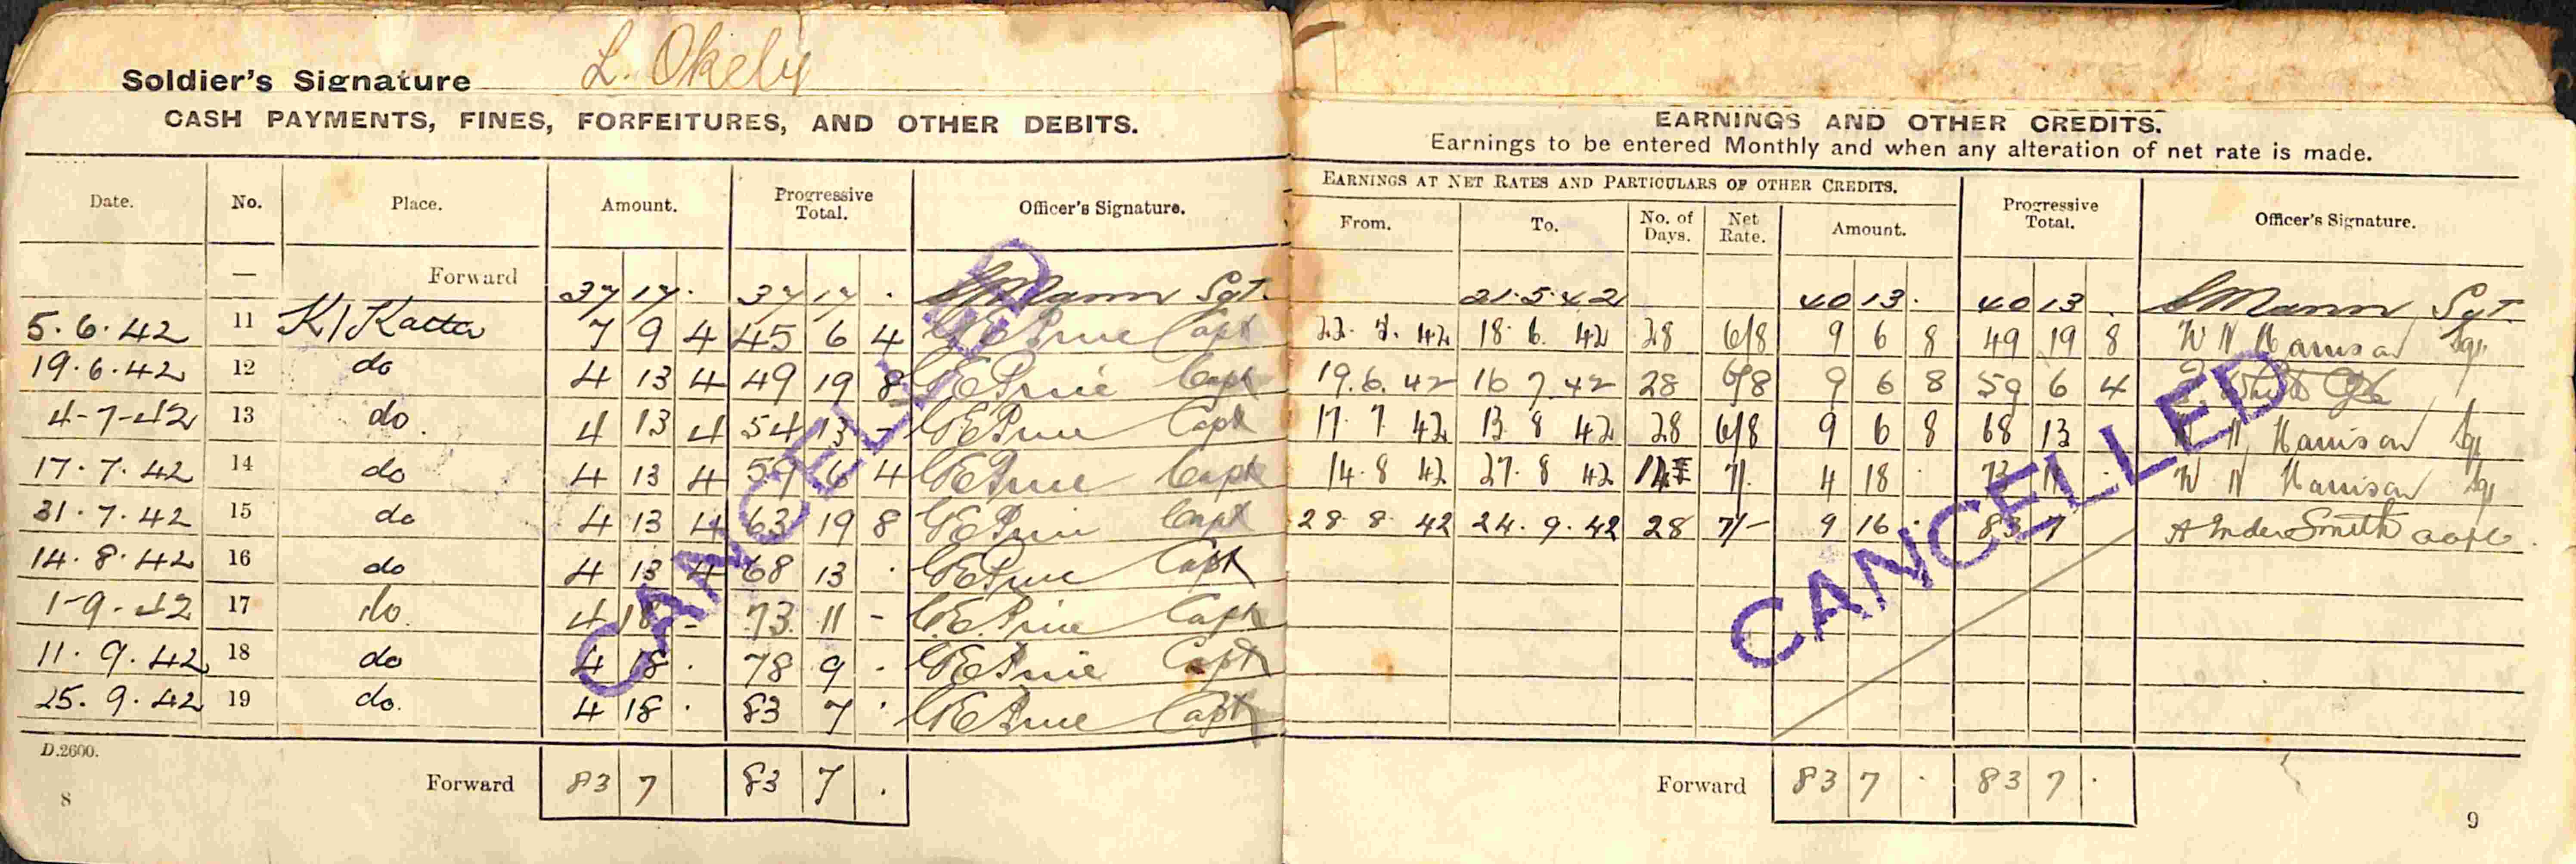 Soldier's Signature L. Okely
CASH PAYMENTS, FINES, FORFEITURES, AND OTHER DEBITS.
Date. No. Place. Amount. Progressive Total. Officer's Signature.
— Forward 37 17 · 37 17 · Mann Sgt.
5.6.42 11 K/Katta 7 9 4 45 6 4 Capt
19.6.42 12 do 4 13 4 49 19 8 Capt
4-7-42 13 do. 4 13 4 54 13 - Capt
17.7.42 14 do 4 13 4 59 6 4 Capt
31.7.42 15 do 4 13 4 63 19 8 Capt
14.8.42 16 do 4 13 4 68 13 · Capt
1-9-42 17 do. 4 18 - 73 11 - Capt
11.9.42 18 do 4 18 · 78 9 · Capt
25.9.42 19 do. 4 18 · 83 7 · Capt
D.2600.
Forward 83 7 83 7 .
8
CANCELLED
EARNINGS AND OTHER CREDITS.
Earnings to be entered Monthly and when any alteration of net rate is made.
EARNINGS AT NET RATES AND PARTICULARS OF OTHER CREDITS.
From. To. No. of Days. Net Rate. Amount. Progressive Total. Officer's Signature.
21.5.42 40 13 · 40 13 . Mann Sgt.
22. 5. 42 18 6. 42 28 6/8 9 6 8 49 19 8 W N Harrison Sgt
19.6.42 16 7.42 28 6/8 9 6 8 59 6 4
17. 7. 42 13 8 42 28 6/8 9 6 8 68 13 W N Harrison Sgt
14.8 42 27.8 42 14 7/. 4 18 · 73 11 · W N Harrison Sgt
28.8.42 24.9.42 28 7/- 9 16 · 83 7 Smith
Forward 83 7 · 83 7 ·
9
CANCELLED